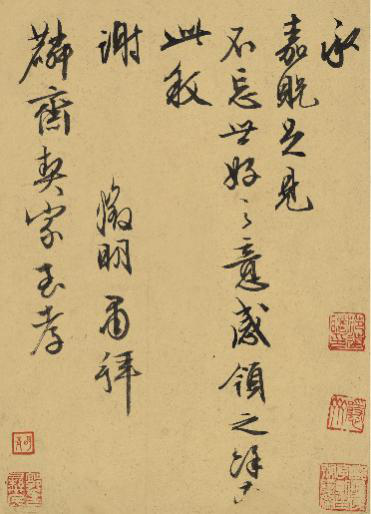 承
嘉貺足見
不忘世好之意感領之餘
此
謝
徵明肅拜
麟齋契家至孝